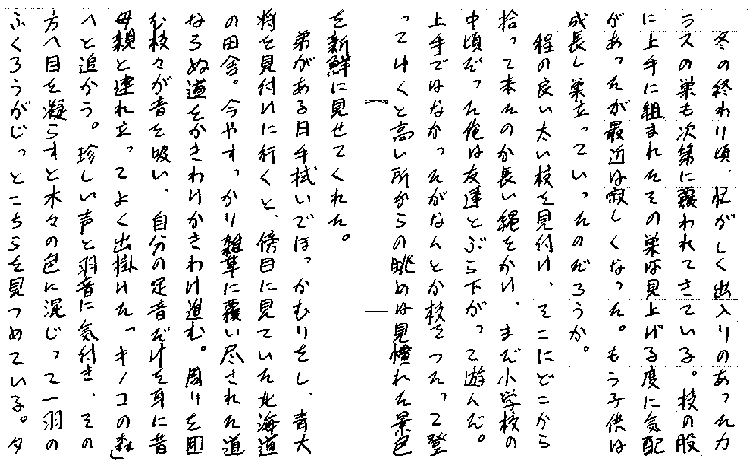 冬の終わり頃、忙がしく出入りのあったカ
ラスの巣も次第に覆われてきている。枝の股
に上手に組まれたその巣は見上げる度に気配
があったが最近は寂しくなった。もう子供は
成長し巣立っていったのだろうか。
程の良い太い枝を見付け、そこにどこから
拾って来たのか長い縄をかけ、まだ小学校の
中頃だった俺は友達とぶら下がって遊んだ。
上手ではなかったがなんとか枝をつたって登
って行くと高い所からの眺めは見慣れた景色
を新鮮に見せてくれた。
弟がある日手拭いでほっかむりをし、青大
将を見付けに行くと、傍目に見ていた北海道
の田舎。今やすっかり雑草に覆い尽された道
ならぬ道をかきわけかきわけ進む。周りを囲
む枝々が音を吸い、自分の足音だけを耳に昔
母親と連れ立ってよく出掛けた「キノコの森」
へと追かう。珍しい声と羽音に気付き、その
方へ目を凝らすと木々の色に混じって一羽の
ふくろうがじっとこちらを見つめている。夕